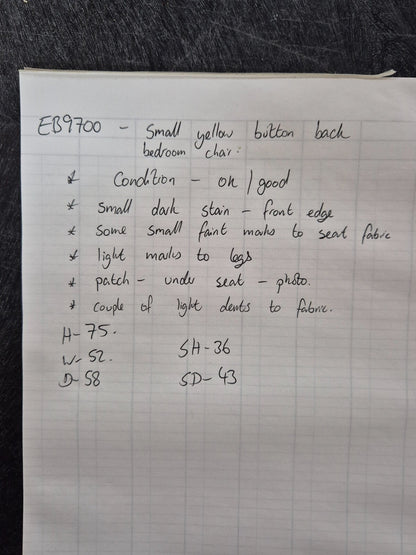 EB9700 - Small yellow button back
bedroom chair:
* Condition - ok / good
* small dark stain - front edge
* some small faint marks to seat fabric
* light marks to legs
* patch - under seat - photo.
* couple of light dents to fabric.
H- 75.
W- 52. SH- 36
D- 58 SD- 43